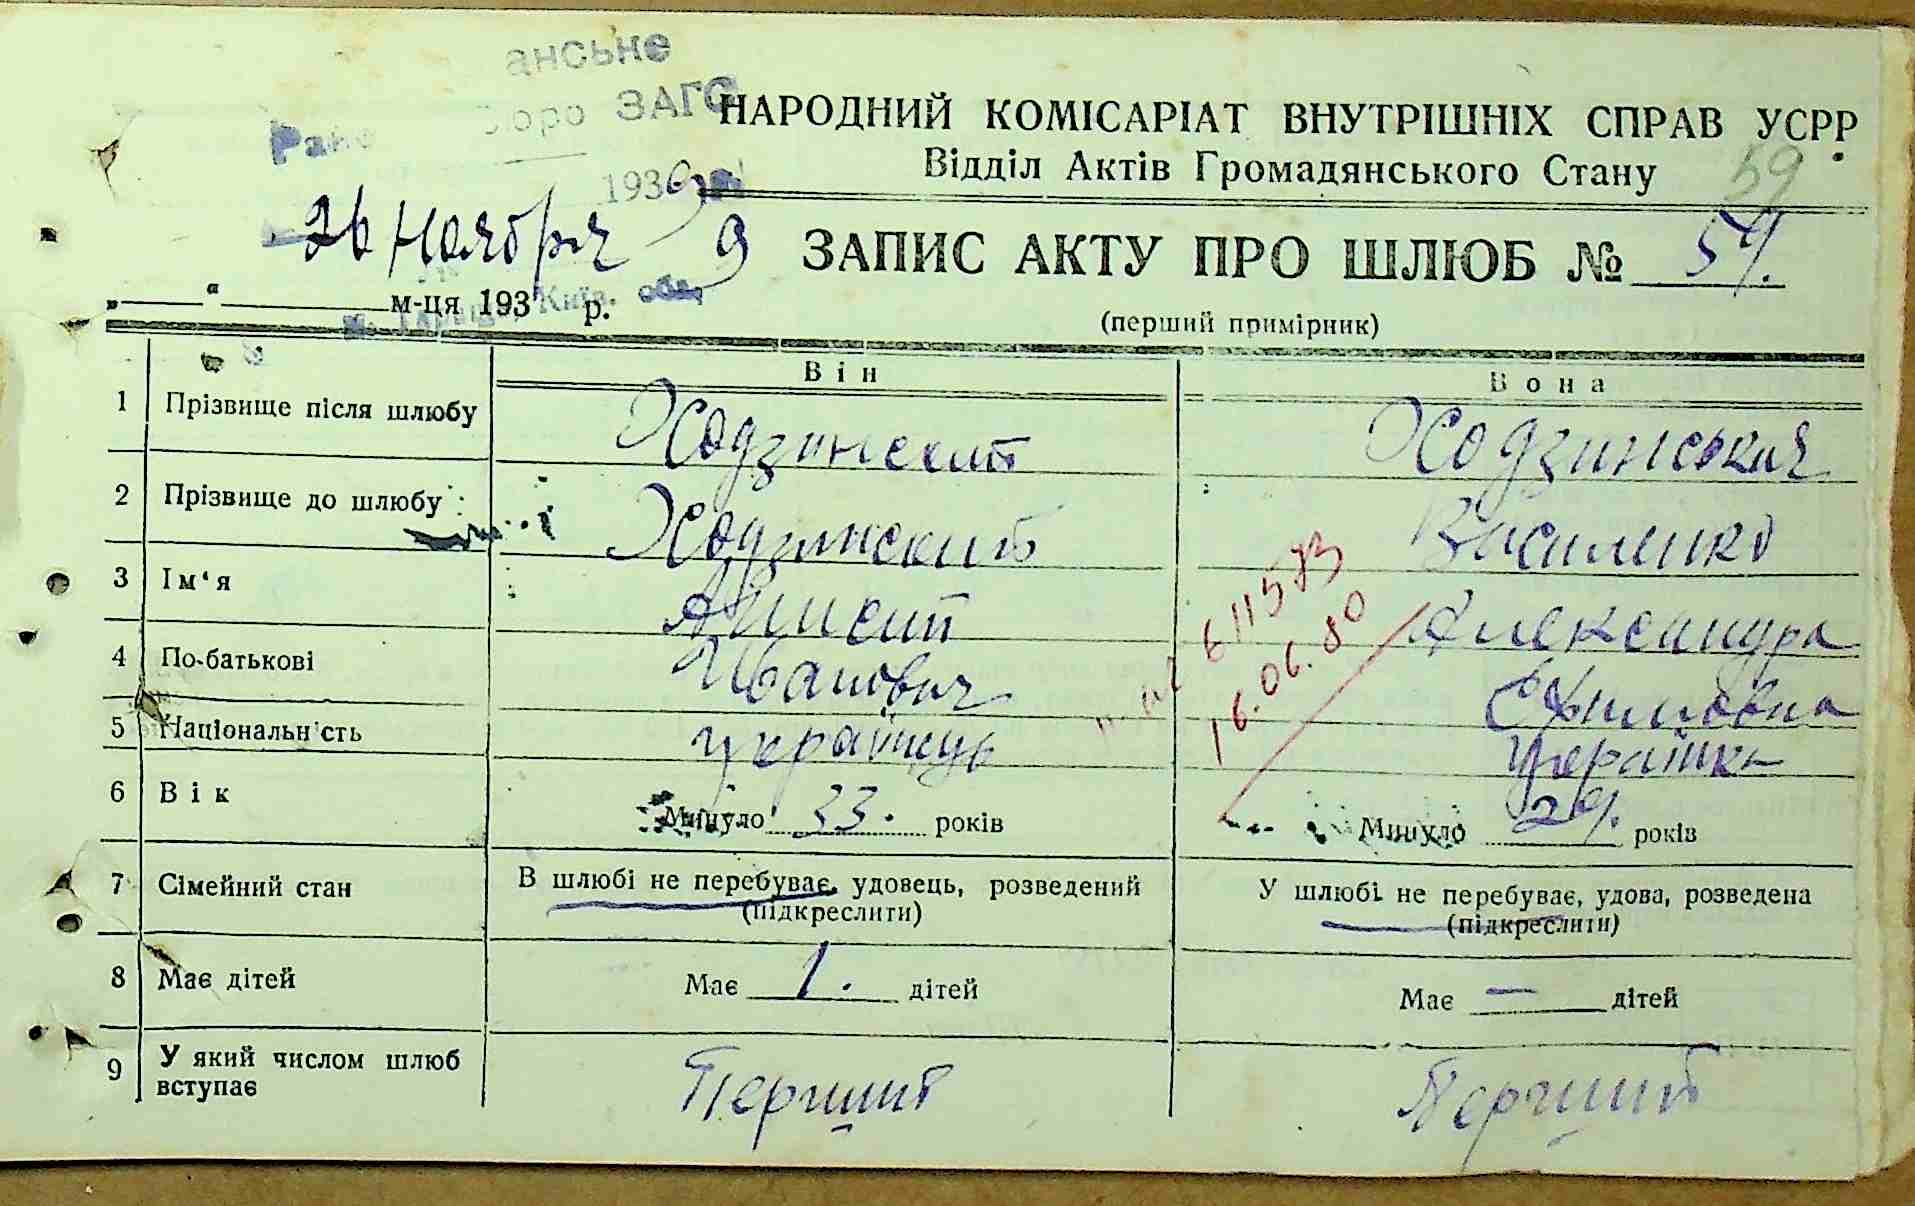 анське
бюро ЗАГС
НАРОДНИЙ КОМІСАРІАТ ВНУТРІШНІХ СПРАВ УСРР
Відділ Актів Громадянського Стану
59
193
26 Ноября 9
ЗАПИС АКТУ ПРО ШЛЮБ № 59.
„ “ м-ця 193 р.
Київ. обл.
(перший примірник)
Він
Вона
1 Прізвище після шлюбу Ходзинский Ходзинська
2 Прізвище до шлюбу Ходзинский Василенко
3 Ім‘я Александра
4 По-батькові Іванович Єфимовна
5 Національність українець українка
611573
16.06.80
6 Вік Минуло 33. років Минуло 29. років
7 Сімейний стан В шлюбі не перебуває, удовець, розведений У шлюбі не перебуває, удова, розведена
(підкреслити) (підкреслити)
8 Має дітей Має 1. дітей Має — дітей
9 У який числом шлюб вступає Перший Перший